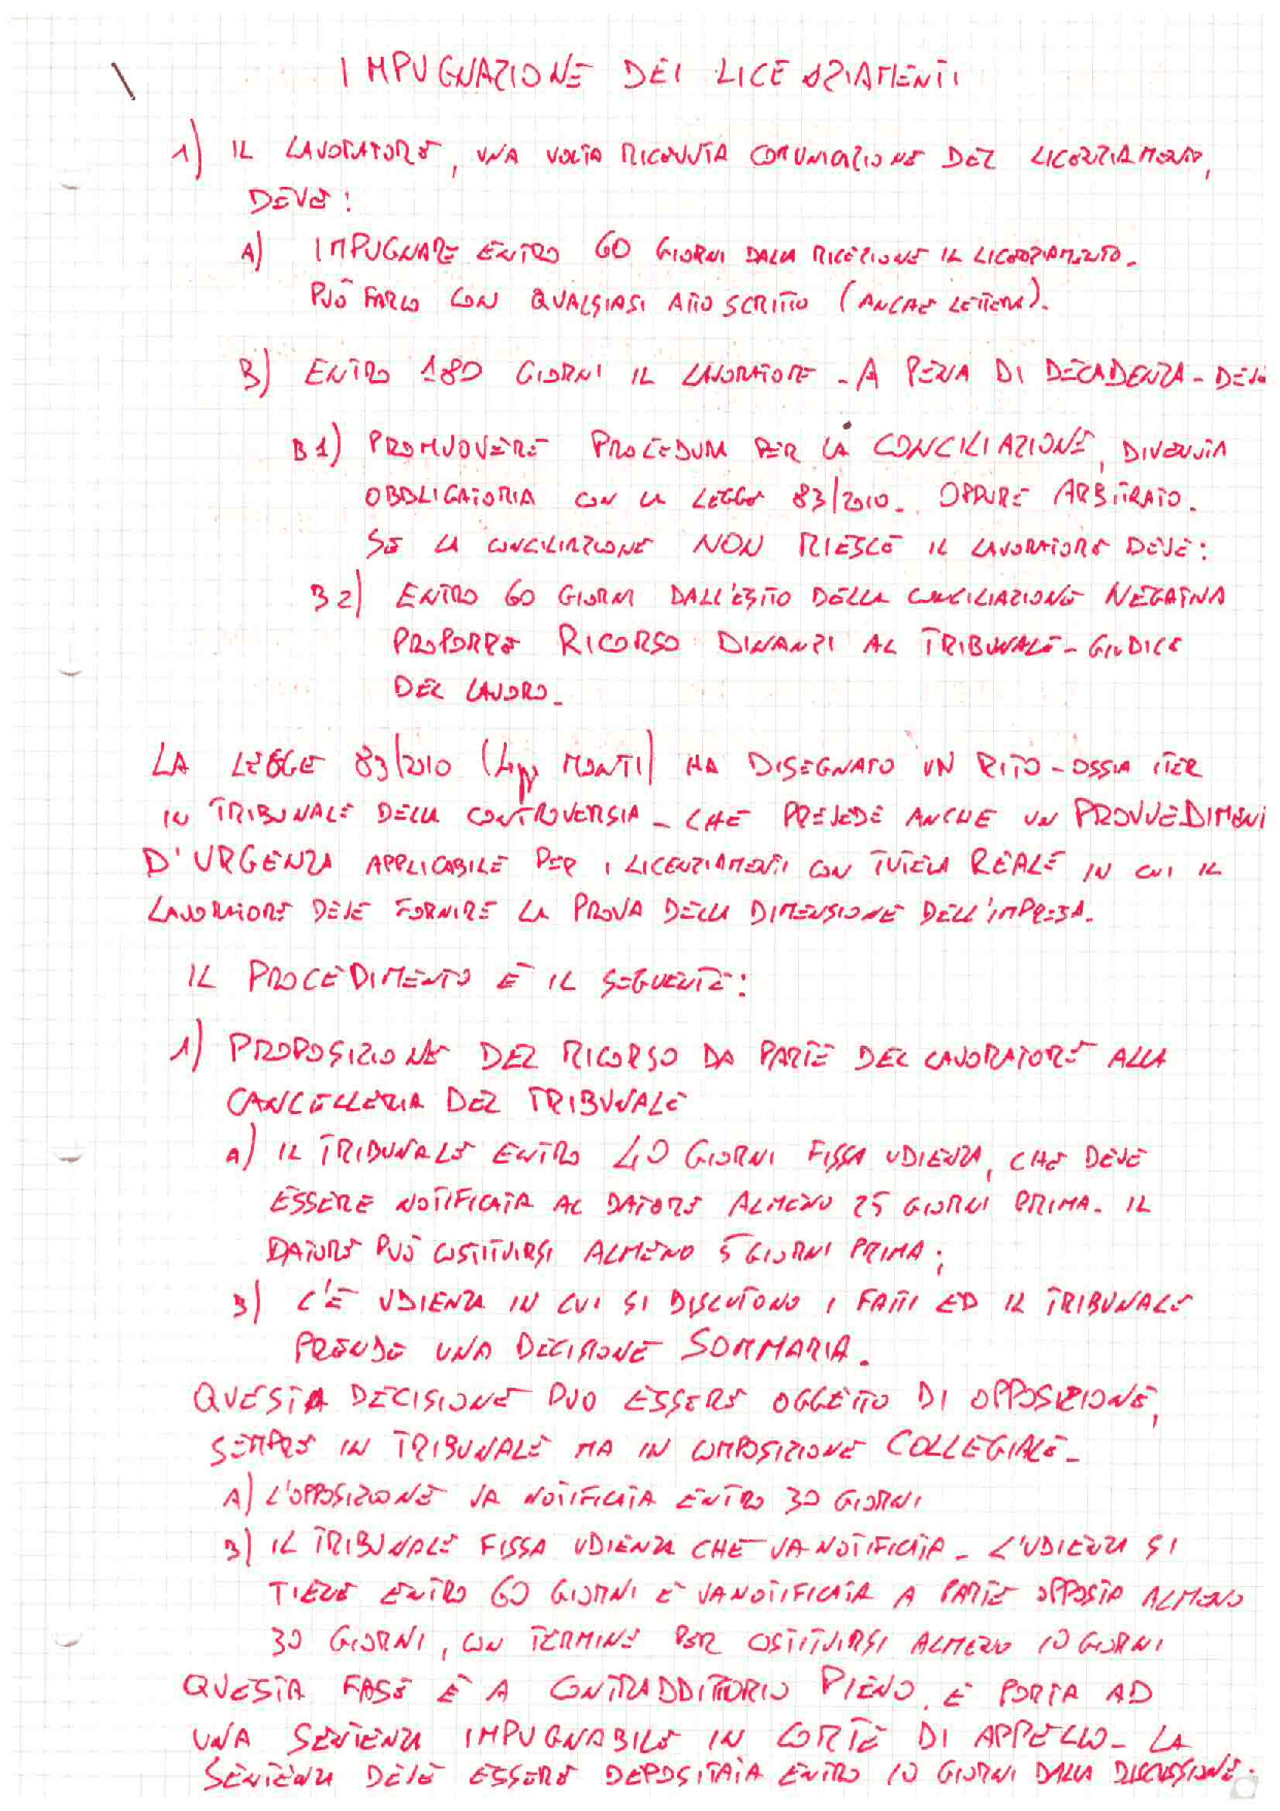 IMPUGNAZIONE DEI LICENZIAMENTI
1) IL LAVORATORE, UNA VOLTA RICEVUTA COMUNICAZIONE DEL LICENZIAMENTO,
DEVE:
A) IMPUGNARE ENTRO 60 GIORNI DALLA RICEZIONE IL LICENZIAMENTO.
PUÒ FARLO CON QUALSIASI ATTO SCRITTO (ANCHE LETTERA).
B) ENTRO 180 GIORNI IL LAVORATORE - A PENA DI DECADENZA - DEVE
B1) PROMUOVERE PROCEDURA PER LA CONCILIAZIONE, DIVENUTA
OBBLIGATORIA CON LA LEGGE 83/2010. OPPURE ARBITRATO.
SE LA CONCILIAZIONE NON RIESCE IL LAVORATORE DEVE:
B2) ENTRO 60 GIORNI DALL'ESITO DELLA CONCILIAZIONE NEGATIVA
PROPORRE RICORSO DINANZI AL TRIBUNALE - GIUDICE
DEL LAVORO.
LA LEGGE 83/2010 (Legge MONTI) HA DISEGNATO UN RITO - OSSIA ITER
IN TRIBUNALE DELLA CONTROVERSIA - CHE PREVEDE ANCHE UN PROVVEDIMEN
D'URGENZA APPLICABILE PER I LICENZIAMENTI CON TUTELA REALE IN CUI IL
LAVORATORE DEVE FORNIRE LA PROVA DELLA DIMENSIONE DELL'IMPRESA.
IL PROCEDIMENTO È IL SEGUENTE:
1) PROPOSIZIONE DEL RICORSO DA PARTE DEL LAVORATORE ALLA
CANCELLERIA DEL TRIBUNALE
A) IL TRIBUNALE ENTRO 40 GIORNI FISSA UDIENZA, CHE DEVE
ESSERE NOTIFICATA AL DATORE ALMENO 25 GIORNI PRIMA. IL
DATORE PUÒ COSTITUIRSI ALMENO 5 GIORNI PRIMA;
B) C'È UDIENZA IN CUI SI DISCUTONO I FATTI ED IL TRIBUNALE
PRENDE UNA DECISIONE SOMMARIA.
QUESTA DECISIONE PUO ESSERE OGGETTO DI OPPOSIZIONE,
SEMPRE IN TRIBUNALE MA IN COMPOSIZIONE COLLEGIALE.
A) L'OPPOSIZIONE VA NOTIFICATA ENTRO 30 GIORNI
B) IL TRIBUNALE FISSA UDIENZA CHE VA NOTIFICATA. L'UDIENZA SI
TIENE ENTRO 60 GIORNI E VA NOTIFICATA A PARTE OPPOSTA ALMENO
30 GIORNI, CON TERMINE PER COSTITUIRSI ALMENO 10 GIORNI
QUESTA FASE È A CONTRADDITTORIO PIENO. E PORTA AD
UNA SENTENZA IMPUGNABILE IN CORTE DI APPELLO. LA
SENTENZA DEVE ESSERE DEPOSITATA ENTRO 10 GIORNI DALLA DISCUSSIONE.